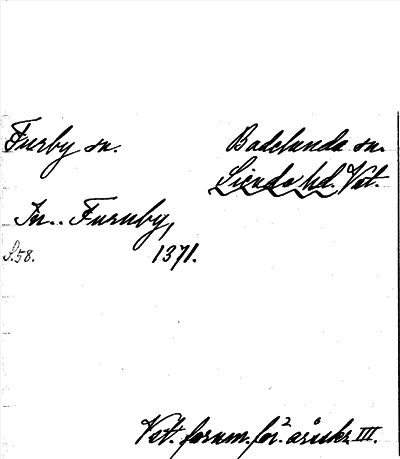 Furby sn. Badelunda sn.
Siende hd. Vst.
In.. Furuby,
S. 58. 1371.
Vet. fornm. för:² årsskr. III.